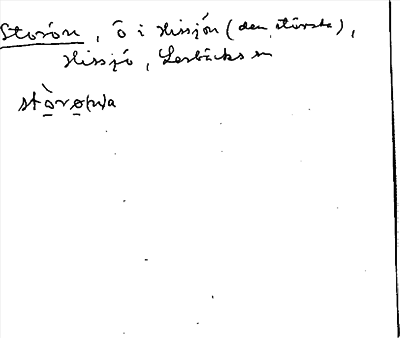 Storön, ö i Hissjön (den största),
Hissjö, Lerbäcks sn
stòrø(n)a